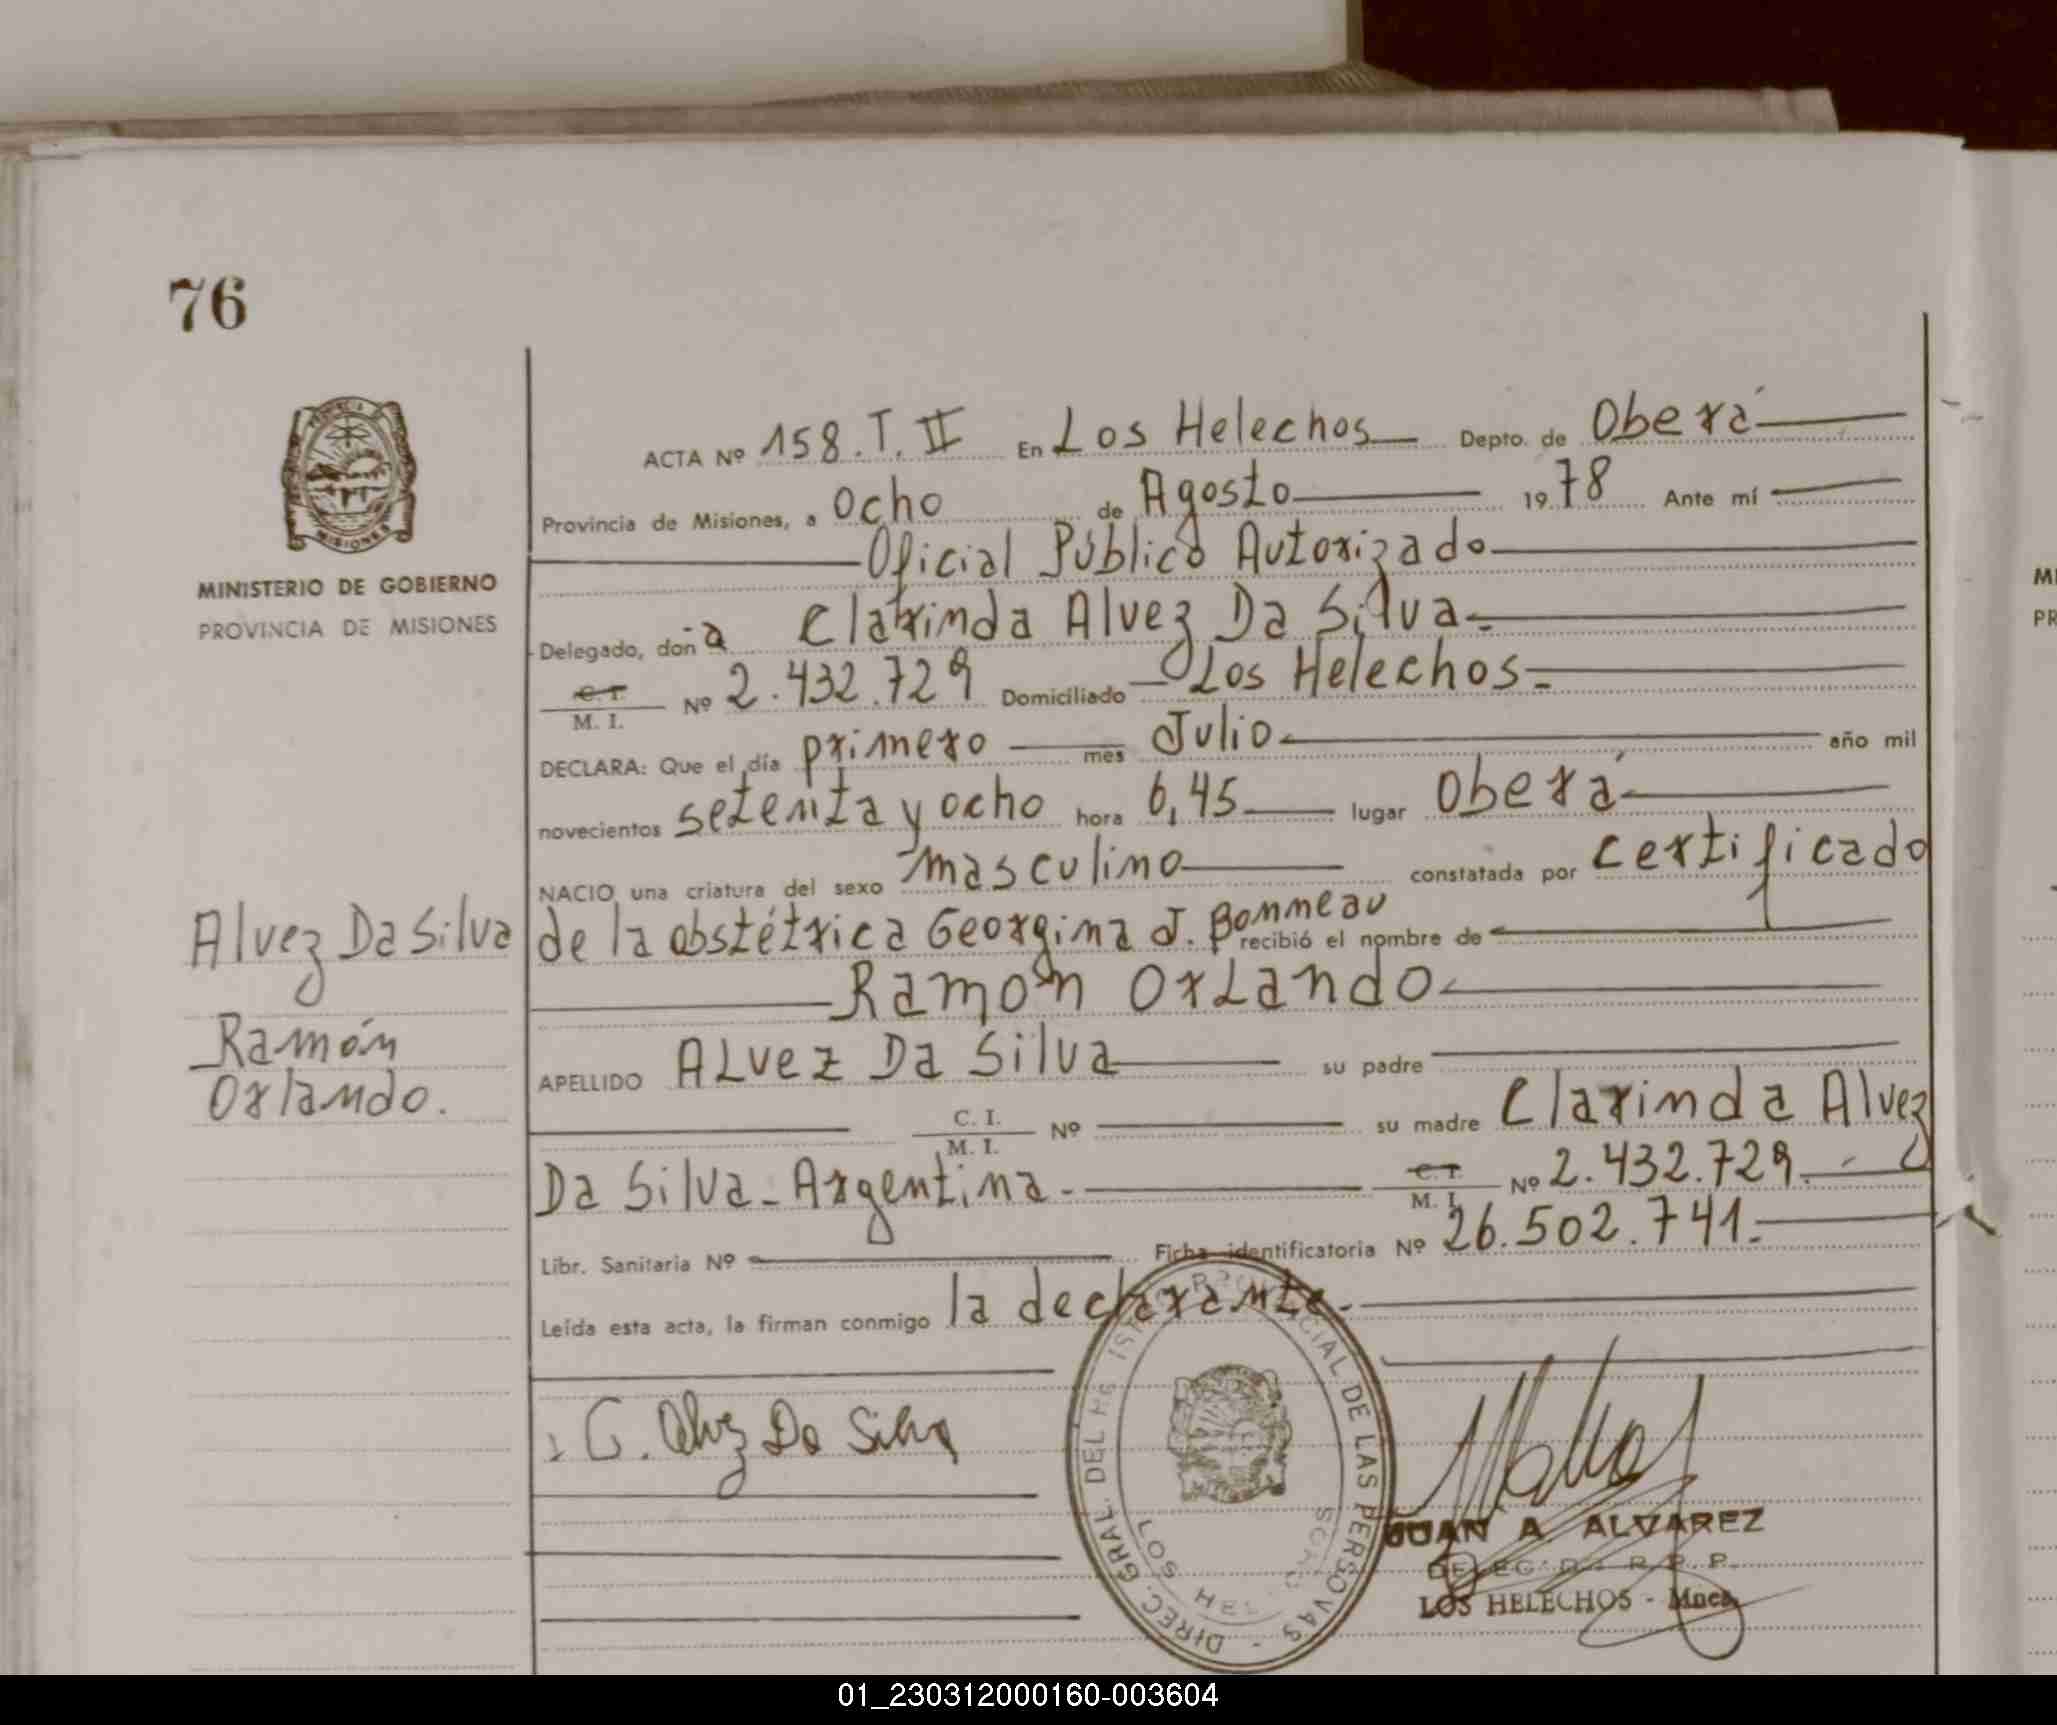 76
MINISTERIO DE GOBIERNO
PROVINCIA DE MISIONES
ACTA Nº 158.T.II En Los Helechos Depto. de Oberá
Provincia de Misiones, a ocho de Agosto 1978 Ante mí
Oficial Público Autorizado
Delegado, don a Clarinda Alvez Da Silva.
C. I. / M. I. Nº 2.432.729 Domiciliado Los Helechos.
DECLARA: Que el día primero mes Julio año mil
novecientos setenta y ocho hora 6,45 lugar Oberá
NACIO una criatura del sexo masculino constatada por certificado
de la obstétrica Georgina J. Bonneau recibió el nombre de
Ramón Orlando
APELLIDO Alvez Da Silva su padre
C. I. / M. I. Nº su madre Clarinda Alvez
Da Silva - Argentina - C. I. / M. I. Nº 2.432.729.
Libr. Sanitaria Nº Ficha identificatoria Nº 26.502.741.
Leída esta acta, la firman conmigo la declarante.
Alvez Da Silva
Ramón
Orlando.
C. Alvez Da Silva
DIREC. GRAL. DEL REGISTRO PROVINCIAL DE LAS PERSONAS
JUAN A ALVAREZ
LOS HELECHOS - Mnes.
01_230312000160-003604